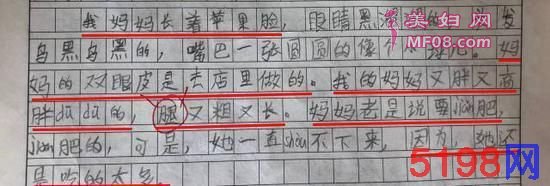 我妈妈长着苹果脸,眼睛黑
美妇网
MF08.com
乌黑乌黑的,嘴巴一张圆圆的像个
妈
妈的双眼皮是去店里做的。我的妈妈又胖又高
胖dū dū的,腿又粗又长。妈妈老是说要jiǎn肥,
jiǎn肥的,可是,她一直shòu不下来,因为,她还
是吃的太多
5198网